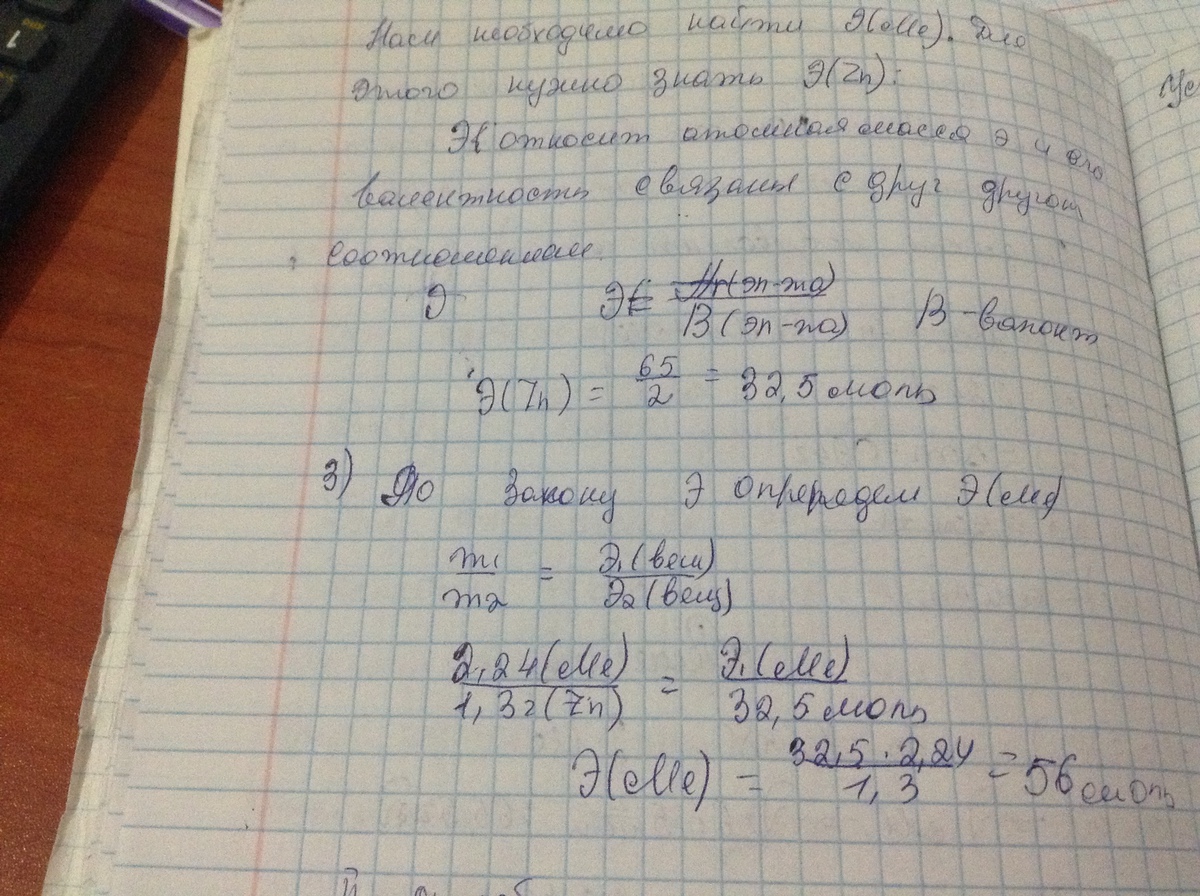 Нам необходимо найти Э(Ме). Для
этого нужно знать Э(Zn):
Э( относит атомная масса Э и его
валентность связаны с друг другом
соотношением.
Э Э = Ar(эл-та) / В(эл-та) В - валент
Э(Zn) = 65/2 = 32,5 моль
3) По закону Э определ Э(Ме)
m1/m2 = Э1(вещ)/Э2(вещ)
2,24(Ме)/1,3г(Zn) = Э1(Ме)/32,5 моль
Э(Ме) = 32,5 · 2,24/1,3 = 56 моль